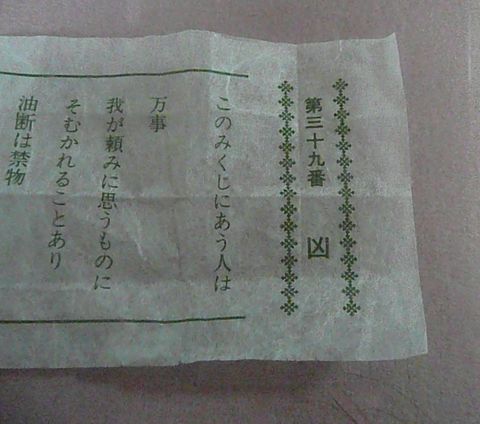 第三十九番 凶
このみくじにあう人は
万事
我が頼みに思うものに
そむかれることあり
油断は禁物